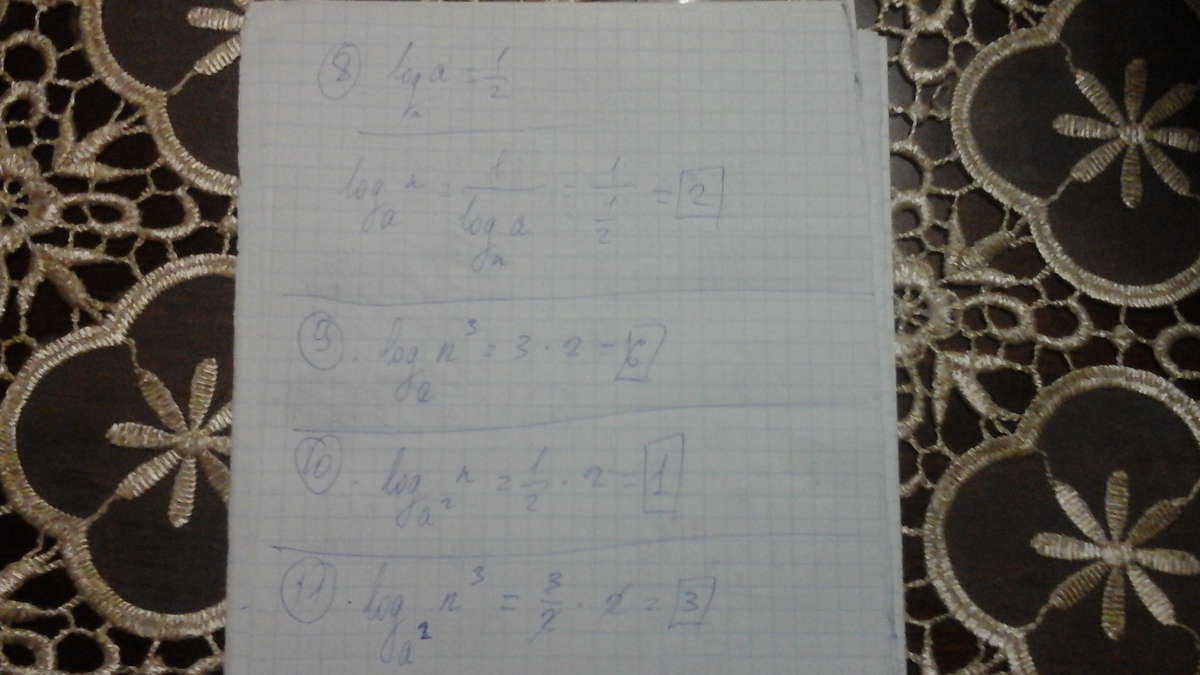 8. logₙ a = 1/2
logₐ n = 1/(logₙ a) = 1/(1/2) = 2
9. logₐ n³ = 3 · 2 = 6
10. log_a² n = 1/2 · 2 = 1
11. log_a² n³ = 3/2 · 2 = 3